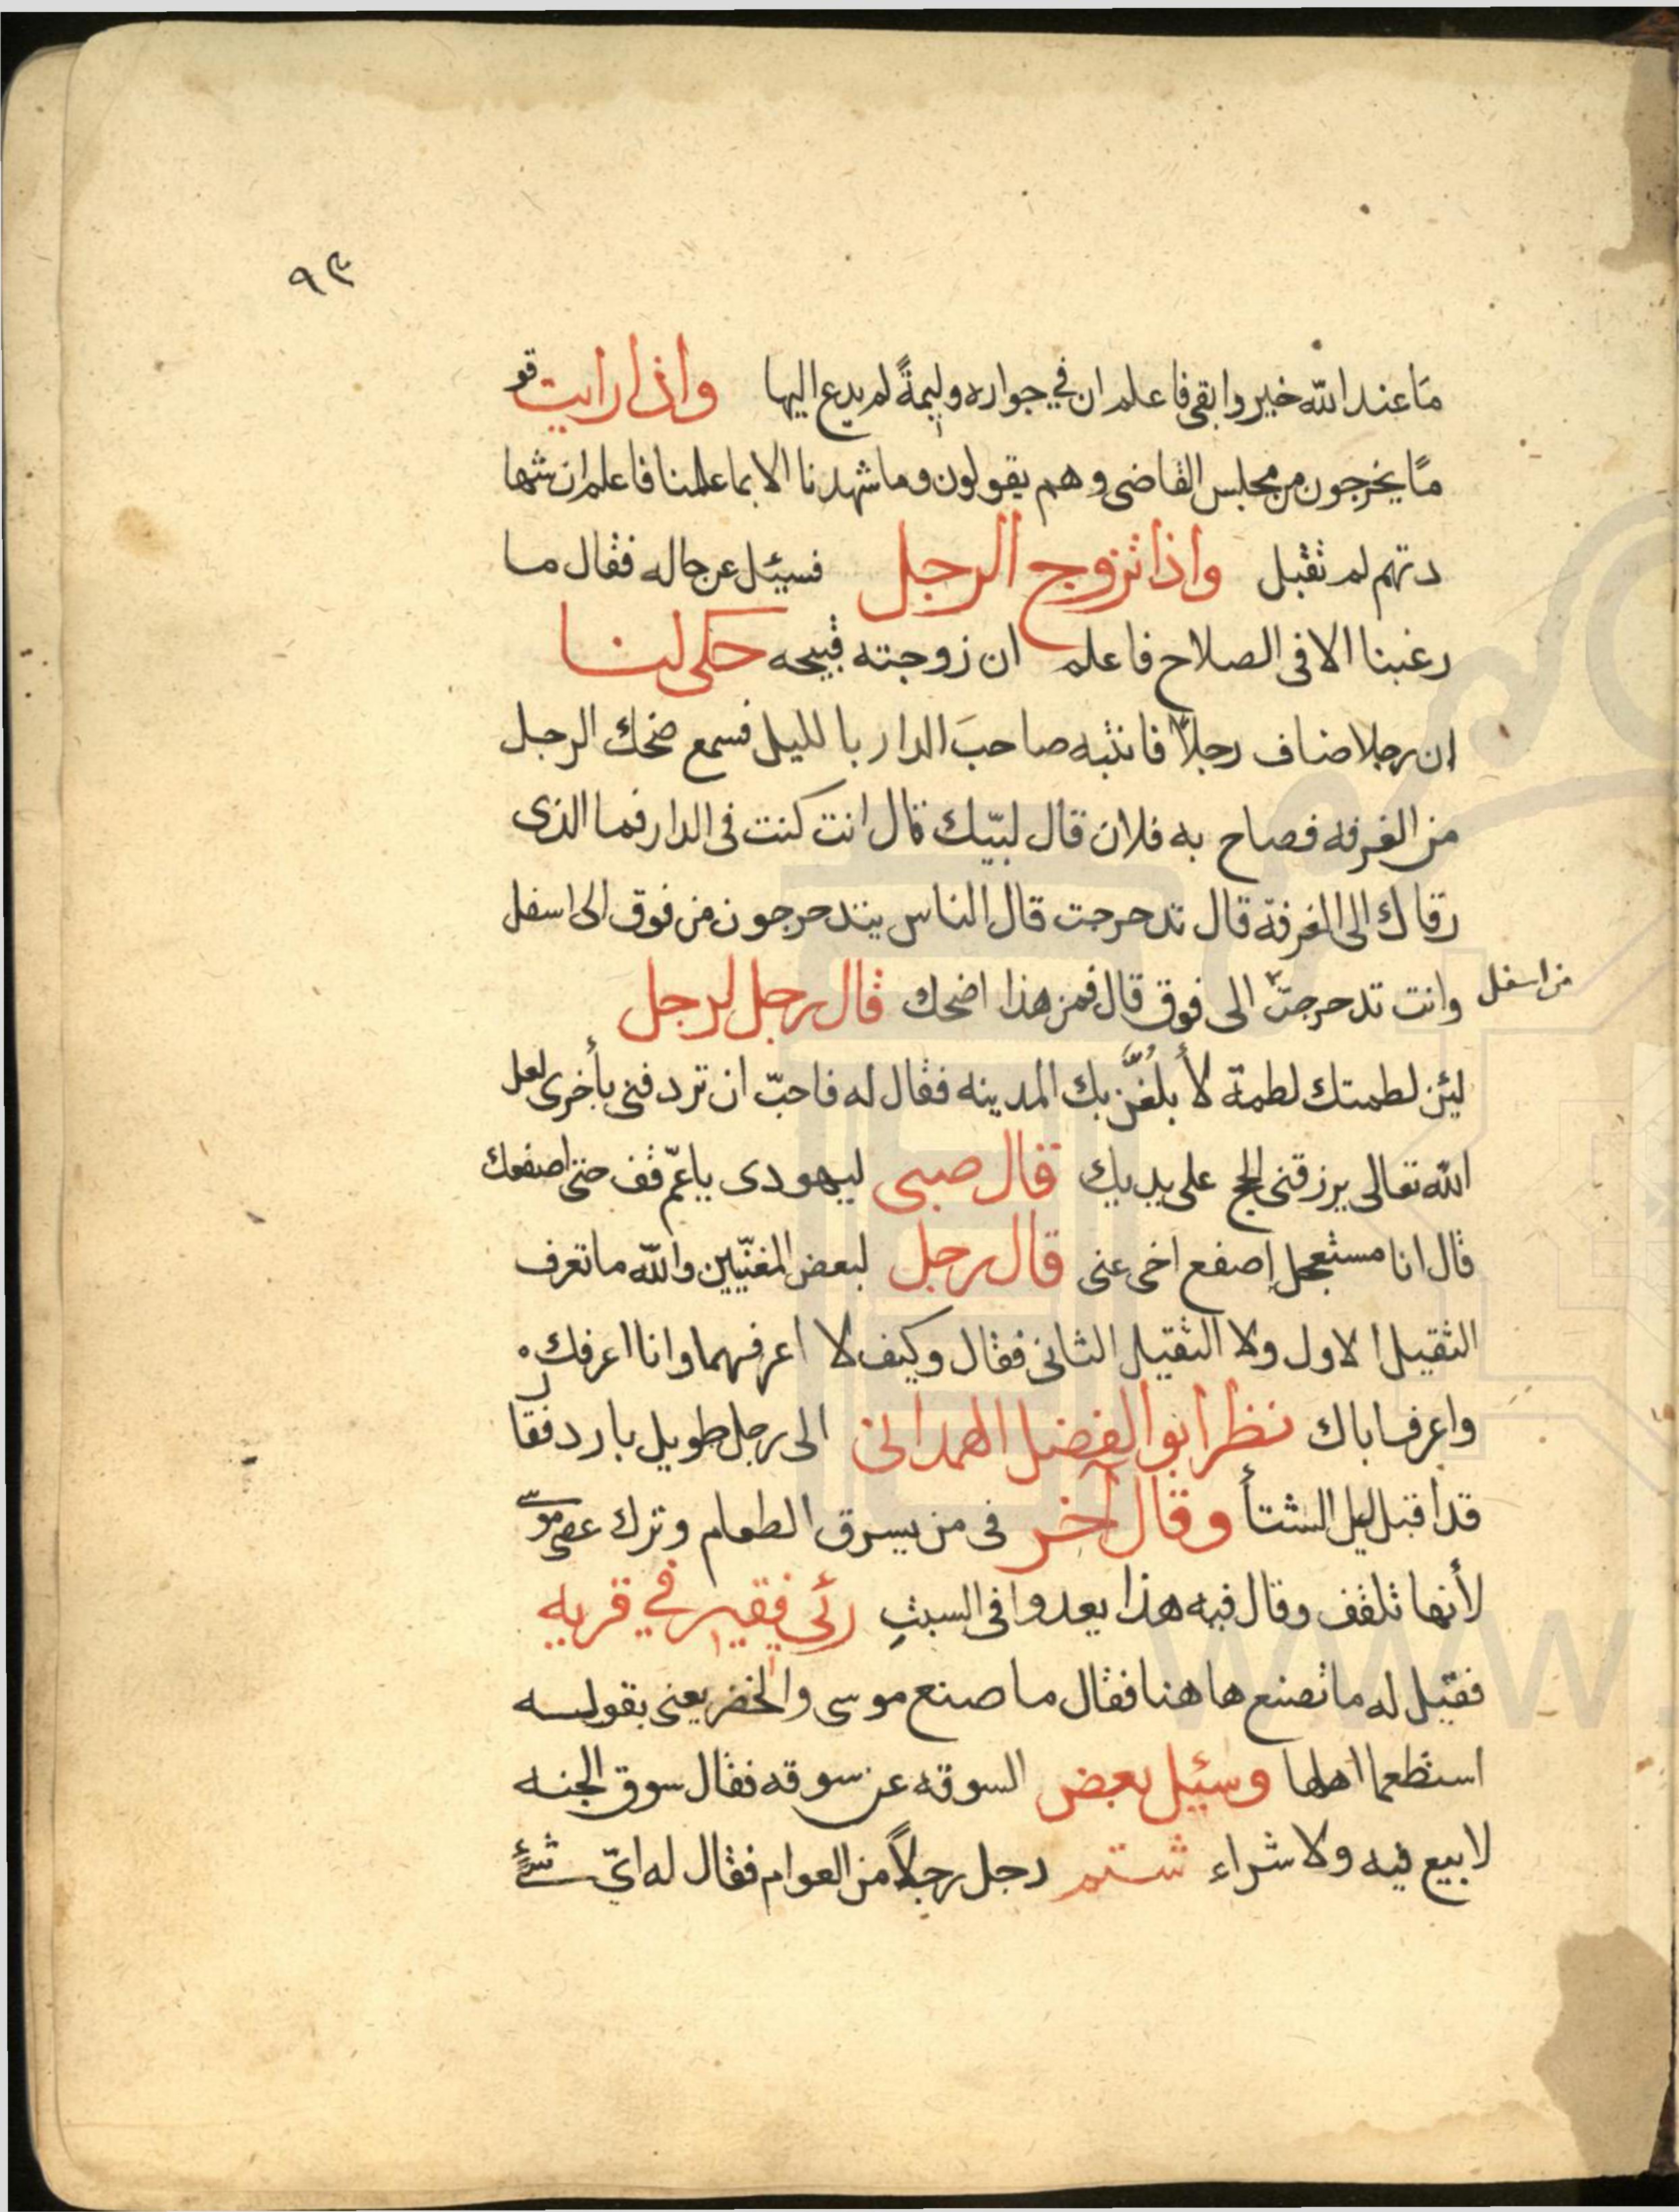 ٩٣
ما عند الله خير وابقى فاعلم ان في جواره وليمةً لم يدع اليها واذا رايت قو
مًا يخرجون من مجلس القاضى وهم يقولون وما شهدنا الا بما علمنا فاعلم ان شها
دتهم لم تقبل واذا تزوج الرجل فسيئل عن حاله فقال ما
رغبنا الا فى الصلاح فاعلم ان زوجته قبيحه حكى لنا
ان رجلا ضاف رجلاً فانتبه صاحبَ الدار بالليل فسمع ضحك الرجل
من الغرفه فصاح به فلان قال لبّيك قال انت كنت فى الدار فما الذى
رقاك الى الغرفة قال تدحرجت قال الناس يتدحرجون من فوق الى اسفل
وانت تدحرجت الى فوق قال فمن هذا اضحك قال رجل لرجل
من اسفل
ليئن لطمتك لطمة لأبلغنّ بك المدينه فقال له فاحبّ ان تردفنى بأخرى لعل
الله تعالى يرزقنى الحج على يديك قال صبى ليهودى ياعمّ قف حتى اصفعك
قال انا مستعجل إصفع اخى عنى قال رجل لبعض المغنّيين والله ما تعرف
الثقيل الاول ولا الثقيل الثانى فقال وكيف لا اعرفهما وانا اعرفك
واعرف اباك نظر ابو الفضل الهمدانى الى رجل طويل بارد فقال
قد اقبل ليل الشتأ وقال آخر فى من يسرق الطعام وترك عصى موسى
لأنها تلقف وقال فيه هذا يعدوا فى السبتِ رئى فقير في قريه
فقيل له ما تصنع هاهنا فقال ما صنع موسى والخضر يعنى بقوله
استطعما اهلها وسئيل بعض السوقه عن سوقه فقال سوق الجنه
لا بيع فيه ولا شراء شتم رجل رجلاً من العوام فقال له ايّ شئٍ